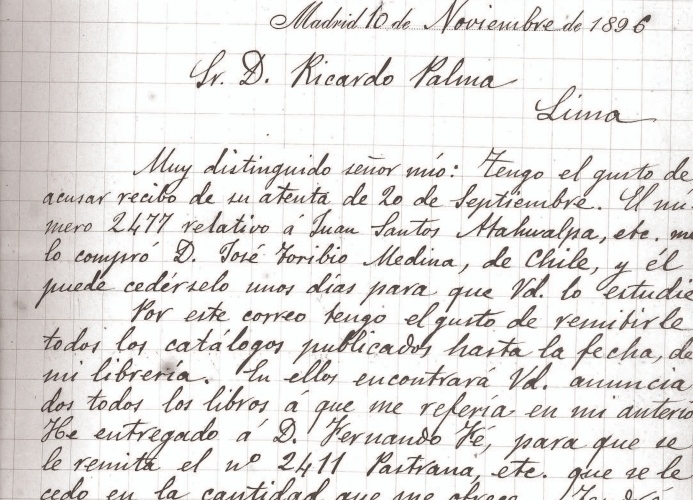 Madrid 10 de Noviembre de 1896
Sr. D. Ricardo Palma
Lima
Muy distinguido señor mío: Tengo el gusto de
acusar recibo de su atenta de 20 de Septiembre. El nú-
mero 2477 relativo á Juan Santos Atahualpa, etc. me
lo compró D. José Toribio Medina, de Chile, y él
puede cedérselo unos días para que Vd. lo estudie
Por este correo tengo el gusto de remitirle
todos los catálogos publicados hasta la fecha, de
mi librería. En ellos encontrará Vd. anuncia
dos todos los libros á que me refería en mi anterio
He entregado á D. Fernando Fé, para que se
le remita el nº 2411 Pastrana, etc. que se le
cedo en la cantidad que me ofrece.